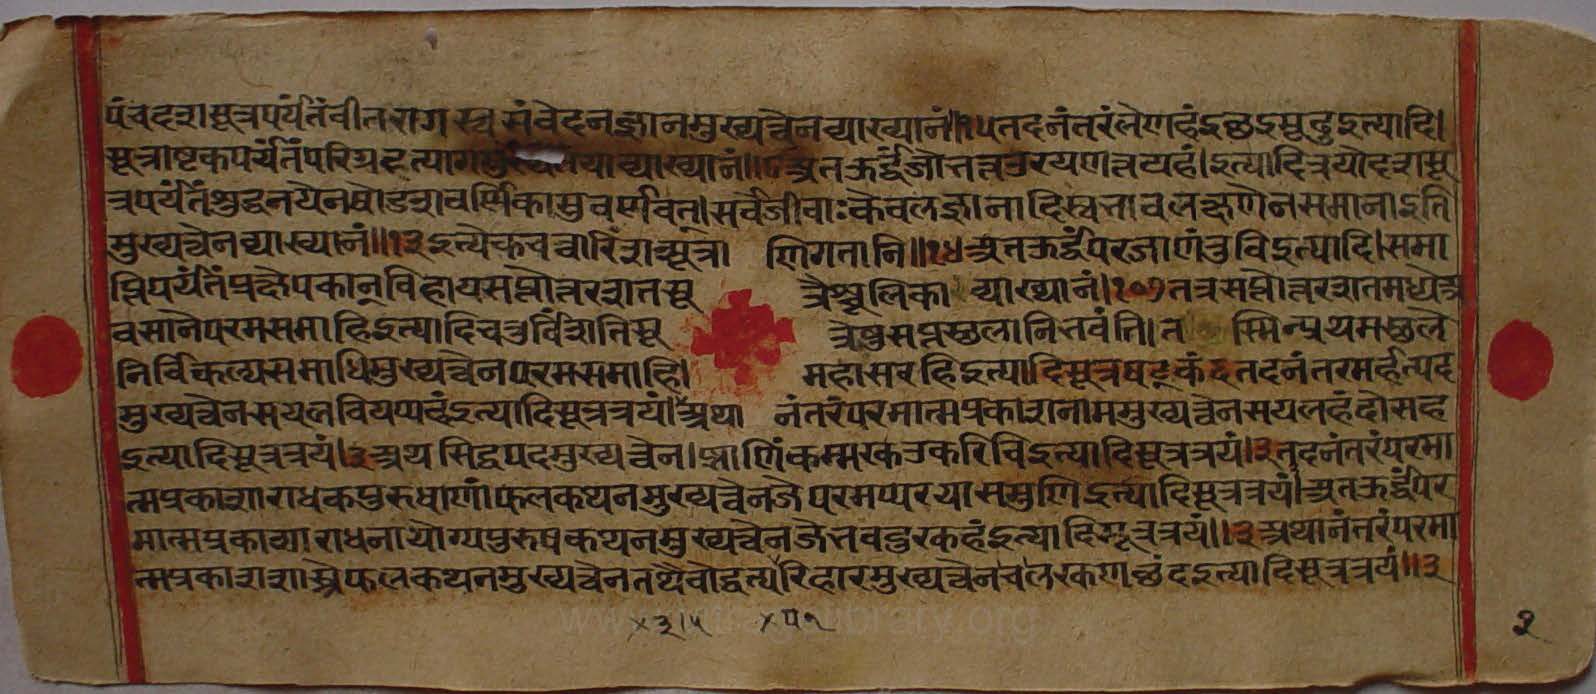 पंचदशसूत्रपर्यंतं वीतरागस्वसंवेदनज्ञानमुख्यत्वेन व्याख्यानं॥१५ तदनंतरं लेणहं इच्छइ मूढु इत्यादि।
सूत्राष्टकपर्यंतं परिग्रहत्याग व्याख्यानं॥८ अत ऊर्द्ध्वं जो भत्तउ रयणत्तयहं। इत्यादि त्रयोदशसू
त्रपर्यंतं शुद्धनयेन षोडशवर्णिकासुवर्णवत्। सर्वे जीवाः केवलज्ञानादिस्वभावलक्षणेन समाना इति
मुख्यत्वेन व्याख्यानं॥१३ इत्येकचत्वारिंशत्सूत्रा णि गतानि॥ अत ऊर्द्ध्वं परजाणंतु वि इत्यादि। समा
प्तिपर्यंतं प्रक्षेपकान् विहाय सप्तोत्तरशतसू त्रैश्चूलिका व्याख्यानं।१०७ तत्र सप्तोत्तरशतमध्ये अ
वसाने परमसमाहि इत्यादि चतुर्विंशतिसू त्रेषु सप्तस्थलानि भवंति। त स्मिन्प्रथमस्थले
निर्विकल्पसमाधिमुख्यत्वेन परमसमाहि। महासरहि इत्यादि सूत्रषट्कं ६ तदनंतरमर्हत्पद
मुख्यत्वेन सयलवियप्पहं इत्यादि सूत्रत्रयं। अथा नंतरं परमात्मप्रकाशनाममुख्यत्वेन सयलहं दोसह
इत्यादि सूत्रत्रयं।३ अथ सिद्धपदमुख्यत्वेन। झाणिं कम्मक्खउ करिवि इत्यादि सूत्रत्रयं।३ तदनंतरं परमा
त्मप्रकाशाराधकपुरुषाणां फलकथनमुख्यत्वेन जे परमप्पपयासमुणि इत्यादि सूत्रत्रयं। अत ऊर्द्ध्वं पर
मात्मप्रकाशाराधनायोग्यपुरुषकथनमुख्यत्वेन जे भवदुक्खहं इत्यादि सूत्रत्रयं॥३ अथानंतरं परमा
त्मप्रकाशशास्त्रफलकथनमुख्यत्वेन तथैवौद्धत्यपरिहारमुख्यत्वेन च लक्खण छंद इत्यादि सूत्रत्रयं॥३
२